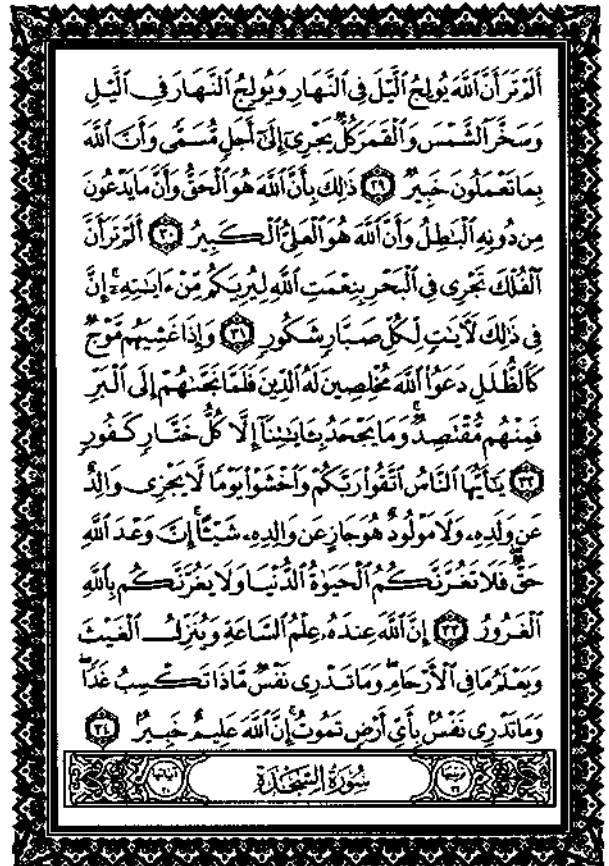 أَلَمْ تَرَ أَنَّ ٱللَّهَ يُولِجُ ٱلَّيْلَ فِي ٱلنَّهَارِ وَيُولِجُ ٱلنَّهَارَ فِي ٱلَّيْلِ
وَسَخَّرَ ٱلشَّمْسَ وَٱلْقَمَرَ كُلٌّ يَجْرِيٓ إِلَىٰٓ أَجَلٍ مُّسَمًّى وَأَنَّ ٱللَّهَ
بِمَا تَعْمَلُونَ خَبِيرٌ ٢٩ ذَٰلِكَ بِأَنَّ ٱللَّهَ هُوَ ٱلْحَقُّ وَأَنَّ مَا يَدْعُونَ
مِن دُونِهِ ٱلْبَٰطِلُ وَأَنَّ ٱللَّهَ هُوَ ٱلْعَلِيُّ ٱلْكَبِيرُ ٣٠ أَلَمْ تَرَ أَنَّ
ٱلْفُلْكَ تَجْرِي فِي ٱلْبَحْرِ بِنِعْمَتِ ٱللَّهِ لِيُرِيَكُم مِّنْ ءَايَٰتِهِۦٓ ۚ إِنَّ
فِي ذَٰلِكَ لَءَايَٰتٍ لِّكُلِّ صَبَّارٍ شَكُورٍ ٣١ وَإِذَا غَشِيَهُم مَّوْجٌ
كَٱلظُّلَلِ دَعَوُا۟ ٱللَّهَ مُخْلِصِينَ لَهُ ٱلدِّينَ فَلَمَّا نَجَّىٰهُمْ إِلَى ٱلْبَرِّ
فَمِنْهُم مُّقْتَصِدٌ ۚ وَمَا يَجْحَدُ بِـَٔايَٰتِنَآ إِلَّا كُلُّ خَتَّارٍ كَفُورٍ
٣٢ يَٰٓأَيُّهَا ٱلنَّاسُ ٱتَّقُوا۟ رَبَّكُمْ وَٱخْشَوْا۟ يَوْمًا لَّا يَجْزِي وَالِدٌ
عَن وَلَدِهِۦ وَلَا مَوْلُودٌ هُوَ جَازٍ عَن وَالِدِهِۦ شَيْـًٔا ۚ إِنَّ وَعْدَ ٱللَّهِ
حَقٌّ ۖ فَلَا تَغُرَّنَّكُمُ ٱلْحَيَوٰةُ ٱلدُّنْيَا وَلَا يَغُرَّنَّكُم بِٱللَّهِ
ٱلْغَرُورُ ٣٣ إِنَّ ٱللَّهَ عِندَهُۥ عِلْمُ ٱلسَّاعَةِ وَيُنَزِّلُ ٱلْغَيْثَ
وَيَعْلَمُ مَا فِي ٱلْأَرْحَامِ ۖ وَمَا تَدْرِي نَفْسٌ مَّاذَا تَكْسِبُ غَدًا ۖ
وَمَا تَدْرِي نَفْسٌۢ بِأَيِّ أَرْضٍ تَمُوتُ ۚ إِنَّ ٱللَّهَ عَلِيمٌ خَبِيرٌۢ ٣٤
ترتيبها ٣٢ سُورَةُ السَّجْدَةِ آياتها ٣٠